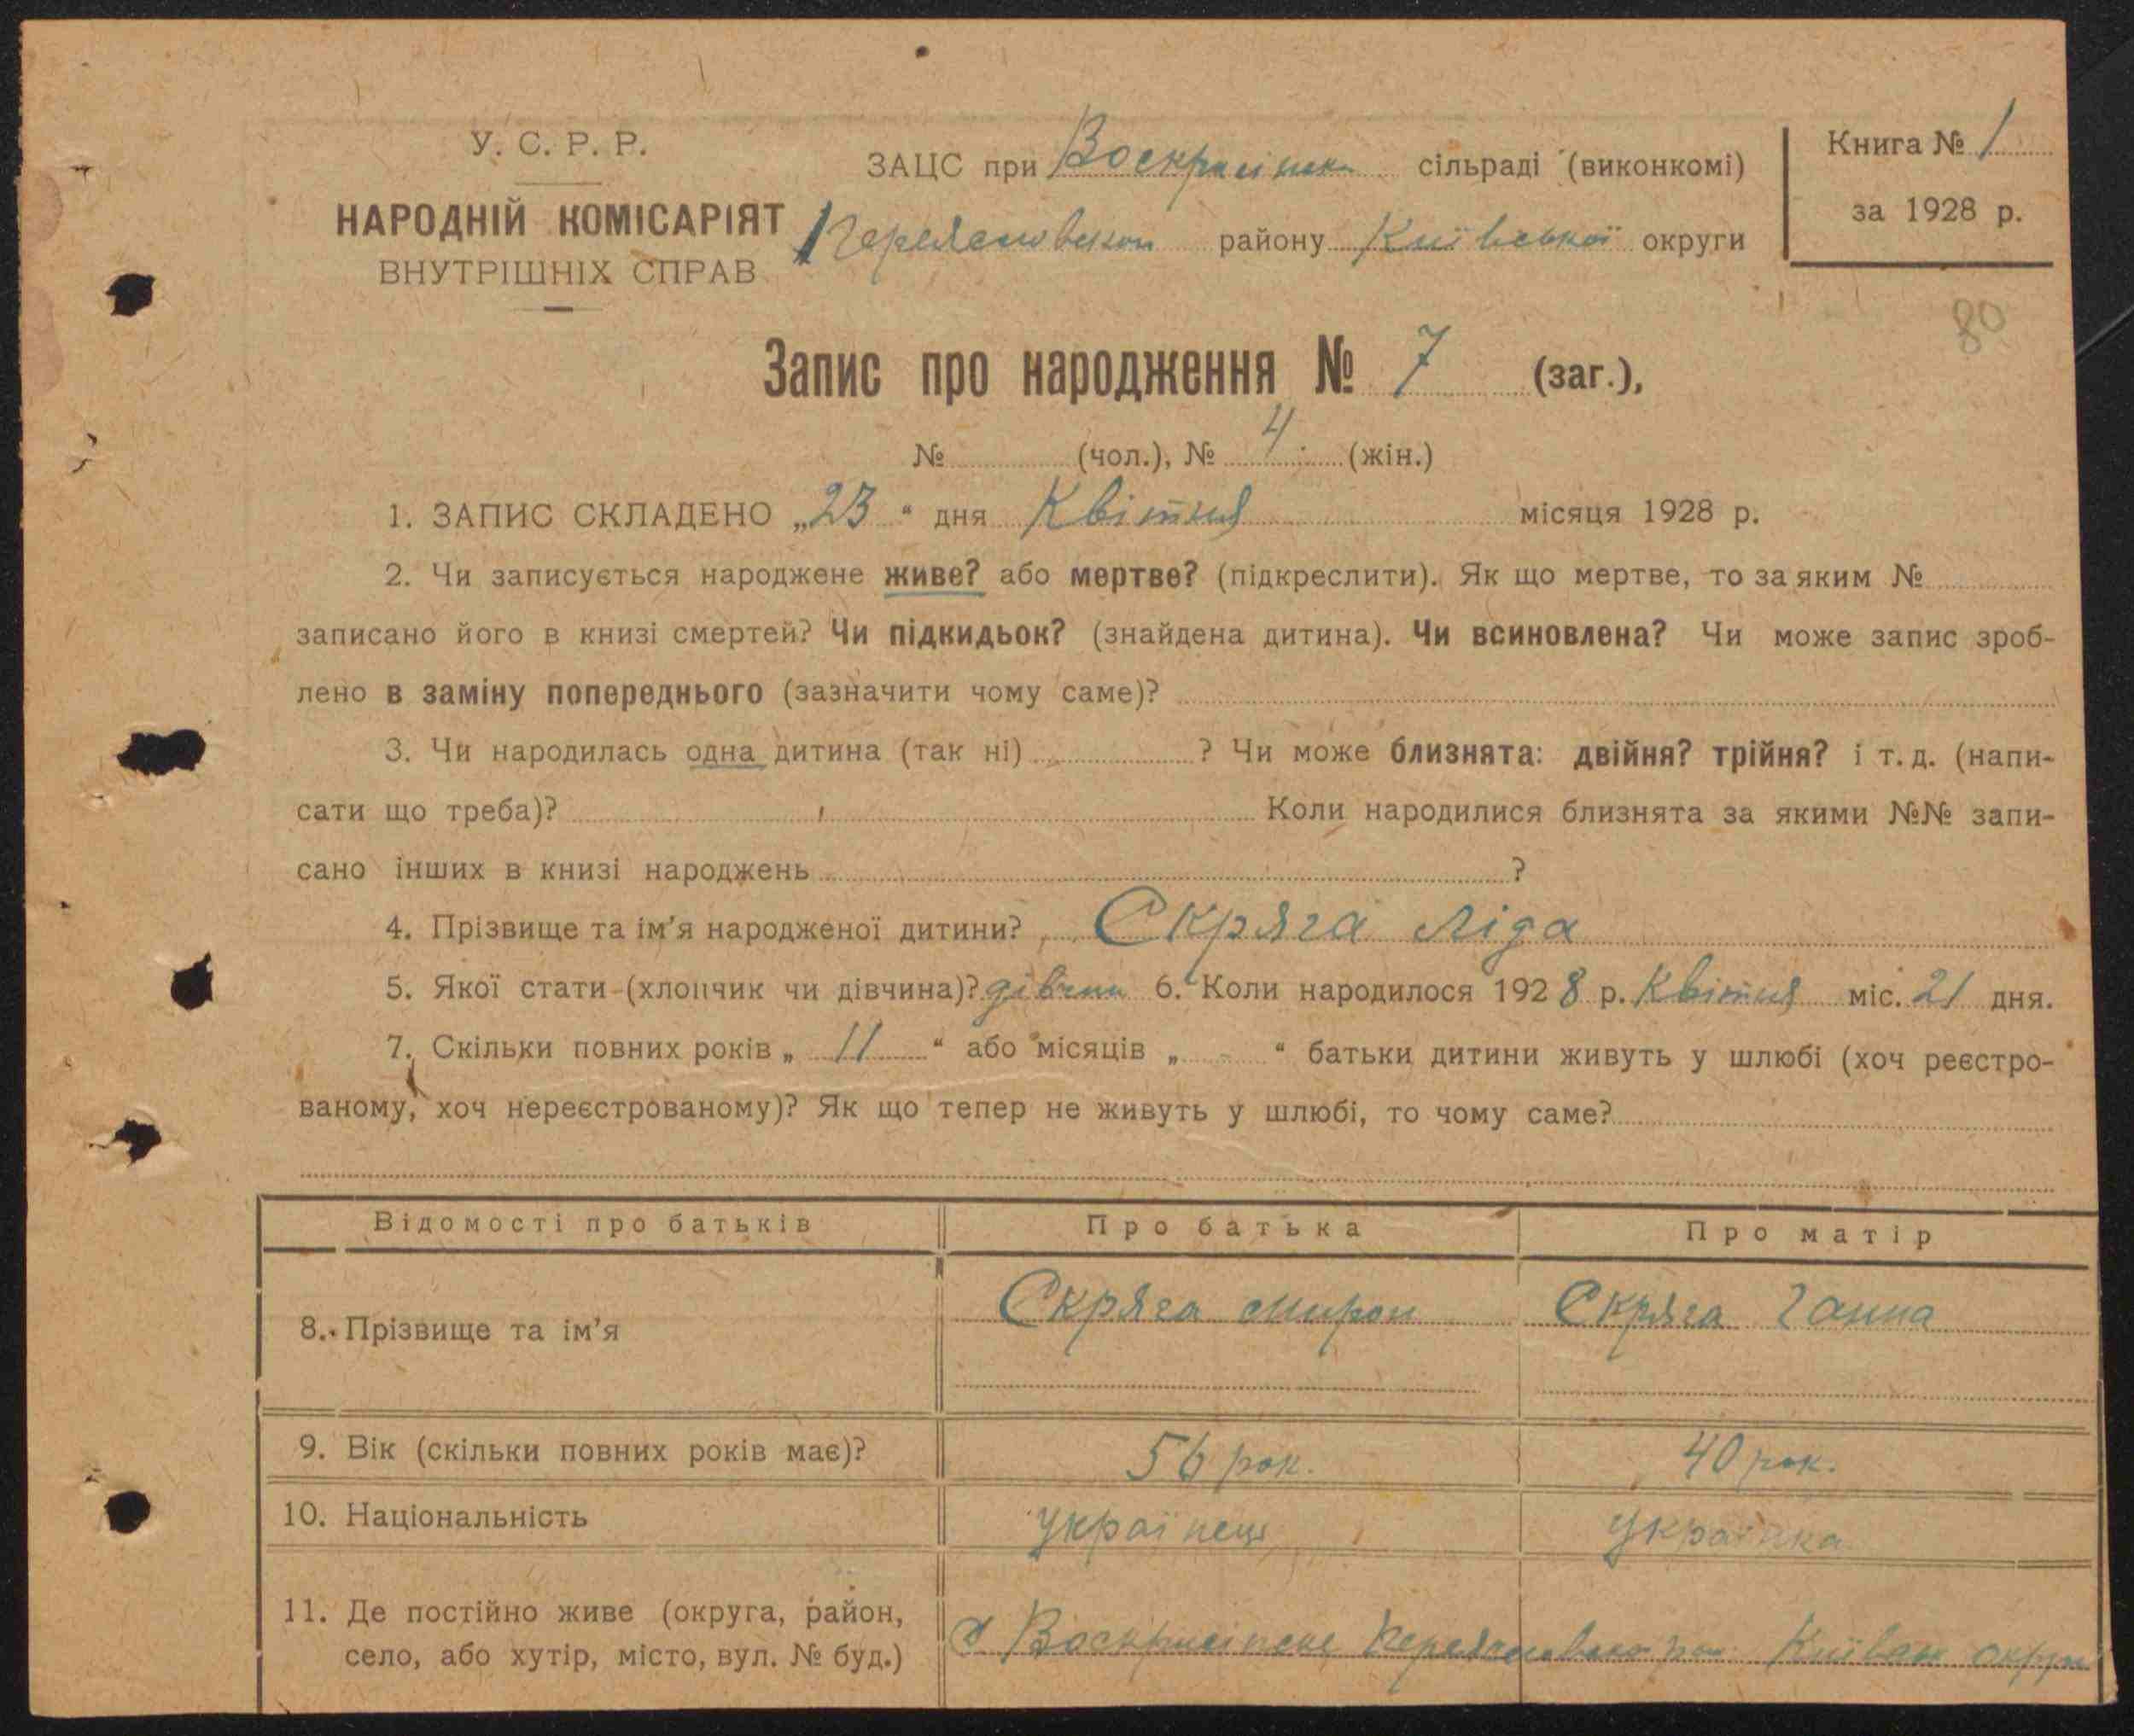 У. С. Р. Р.
НАРОДНІЙ КОМІСАРІЯТ
ВНУТРІШНІХ СПРАВ
ЗАЦС при сільраді (виконкомі)
району Київської округи
Книга № 1
за 1928 р.
80
Запис про народження № 7 (заг.),
№ (чол.), № 4 (жін.)
1. ЗАПИС СКЛАДЕНО „23“ дня Квітня місяця 1928 р.
2. Чи записується народжене живе? або мертве? (підкреслити). Як що мертве, то за яким №
записано його в книзі смертей? Чи підкидьок? (знайдена дитина). Чи всиновлена? Чи може запис зроб-
лено в заміну попереднього (зазначити чому саме)?
3. Чи народилась одна дитина (так ні) ? Чи може близнята: двійня? трійня? і т. д. (напи-
сати що треба)? Коли народилися близнята за якими №№ запи-
сано інших в книзі народжень ?
4. Прізвище та ім’я народженої дитини? Скряга Ліда
5. Якої стати (хлопчик чи дівчина)? дівчин 6. Коли народилося 1928 р. Квітня міс. 21 дня.
7. Скільки повних років „ 11 “ або місяців „ - “ батьки дитини живуть у шлюбі (хоч реєстро-
ваному, хоч нереєстрованому)? Як що тепер не живуть у шлюбі, то чому саме?
Відомості про батьків Про батька Про матір
8. Прізвище та ім’я Скряга Мирон Скряга Ганна
9. Вік (скільки повних років має)? 56 рок. 40 рок.
10. Національність Українець Українка
11. Де постійно живе (округа, район,
село, або хутір, місто, вул. № буд.)